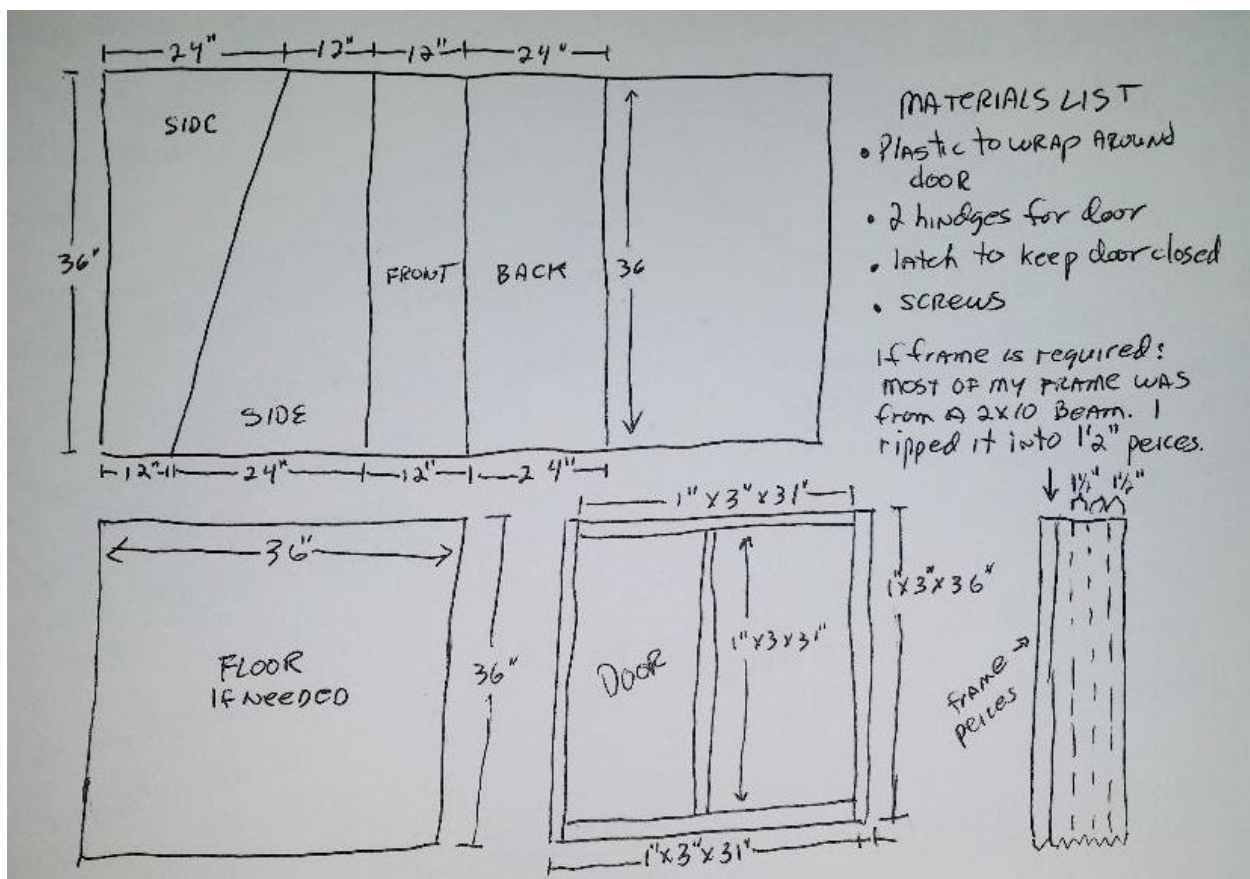 24" 12" 12" 24"
SIDE
36"
FRONT
BACK
36
SIDE
12" 24" 12" 24"
MATERIALS LIST
• Plastic to wrap around
door
• 2 hindges for door
• latch to keep door closed
• screws
If frame is required:
most of my frame was
from a 2x10 beam. I
ripped it into 1'2" peices.
36"
FLOOR
IF NEEDED
36"
1" x 3" x 31"
DOOR
1" x 3 x 31"
1" x 3" x 36"
1" x 3" x 31"
1½" 1½"
frame
peices